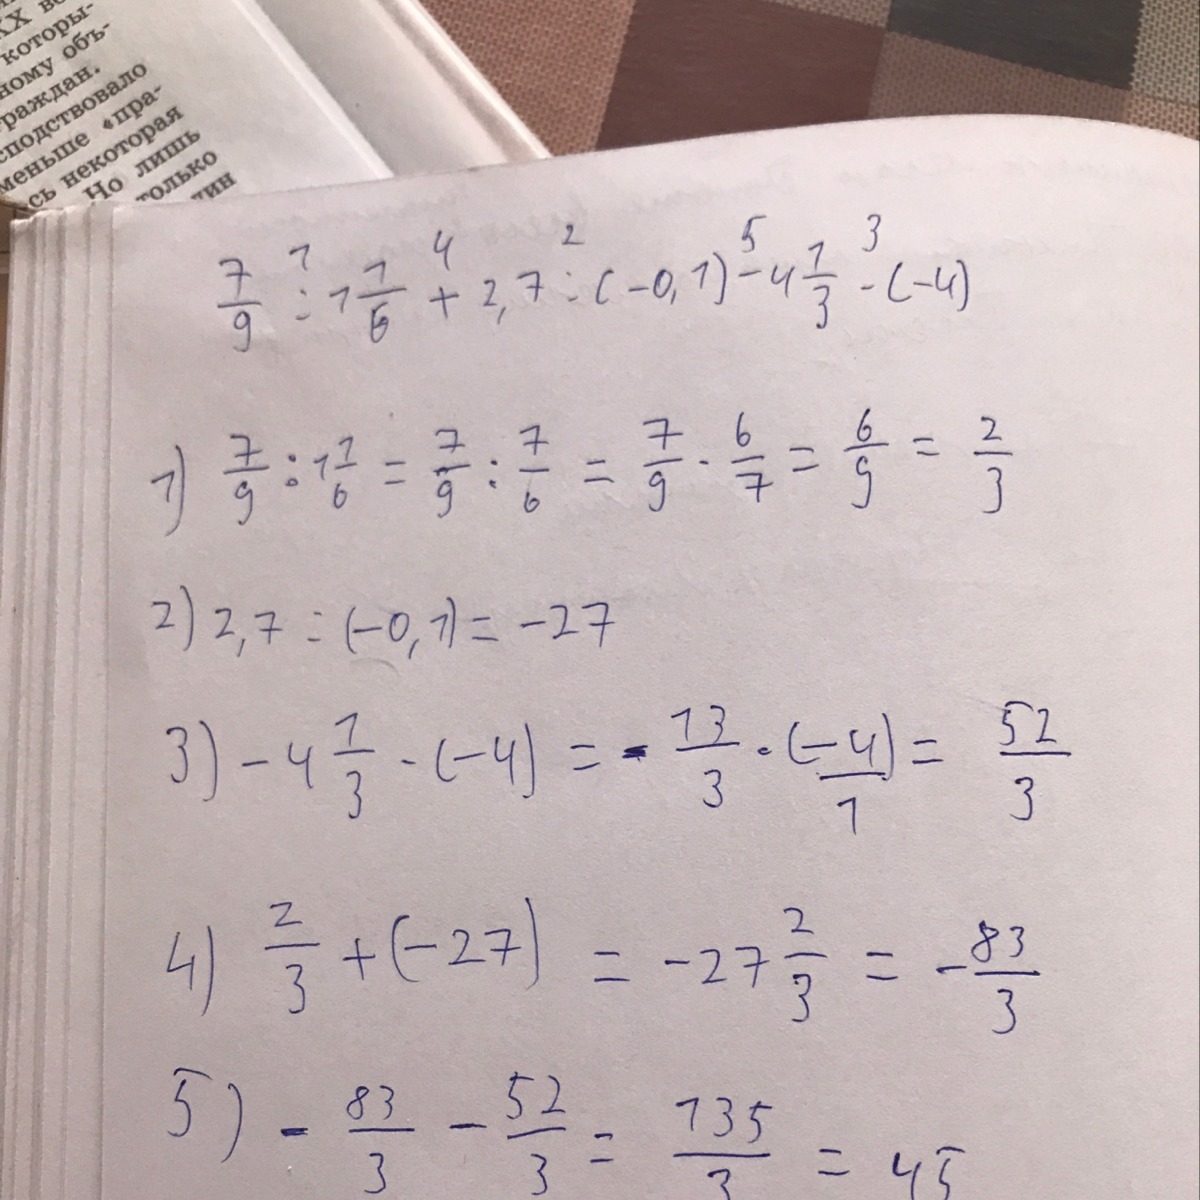 ХХ ве
которы-
ному объ-
граждан.
сподствовало
меньше «пра-
сь некоторая
Но лишь
только
дин
1 4 2 5 3
7/9 : 1 1/6 + 2,7 : (-0,1) - 4 1/3 · (-4)
1) 7/9 : 1 1/6 = 7/9 : 7/6 = 7/9 · 6/7 = 6/9 = 2/3
2) 2,7 : (-0,1) = -27
3) -4 1/3 · (-4) = - 13/3 · (-4)/1 = 52/3
4) 2/3 + (-27) = -27 2/3 = - 83/3
5) - 83/3 - 52/3 = 135/3 = 45